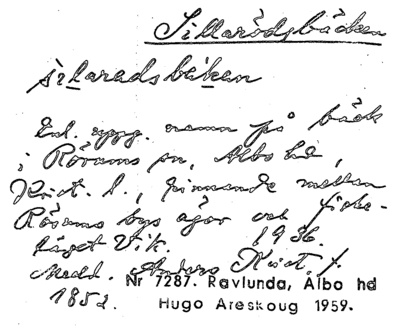 Sillarödsbäcken
silaradsbäken
Enl. uppg. namn på bäck
i Rörums sn, Albo hd,
Krist. l., rinnande mellan
Rörums bys ägor och fiske-
läget Vik. 1936.
Medd. Anders Krist. f.
1852.
Nr 7287. Ravlunda, Albo hd
Hugo Areskoug 1959.